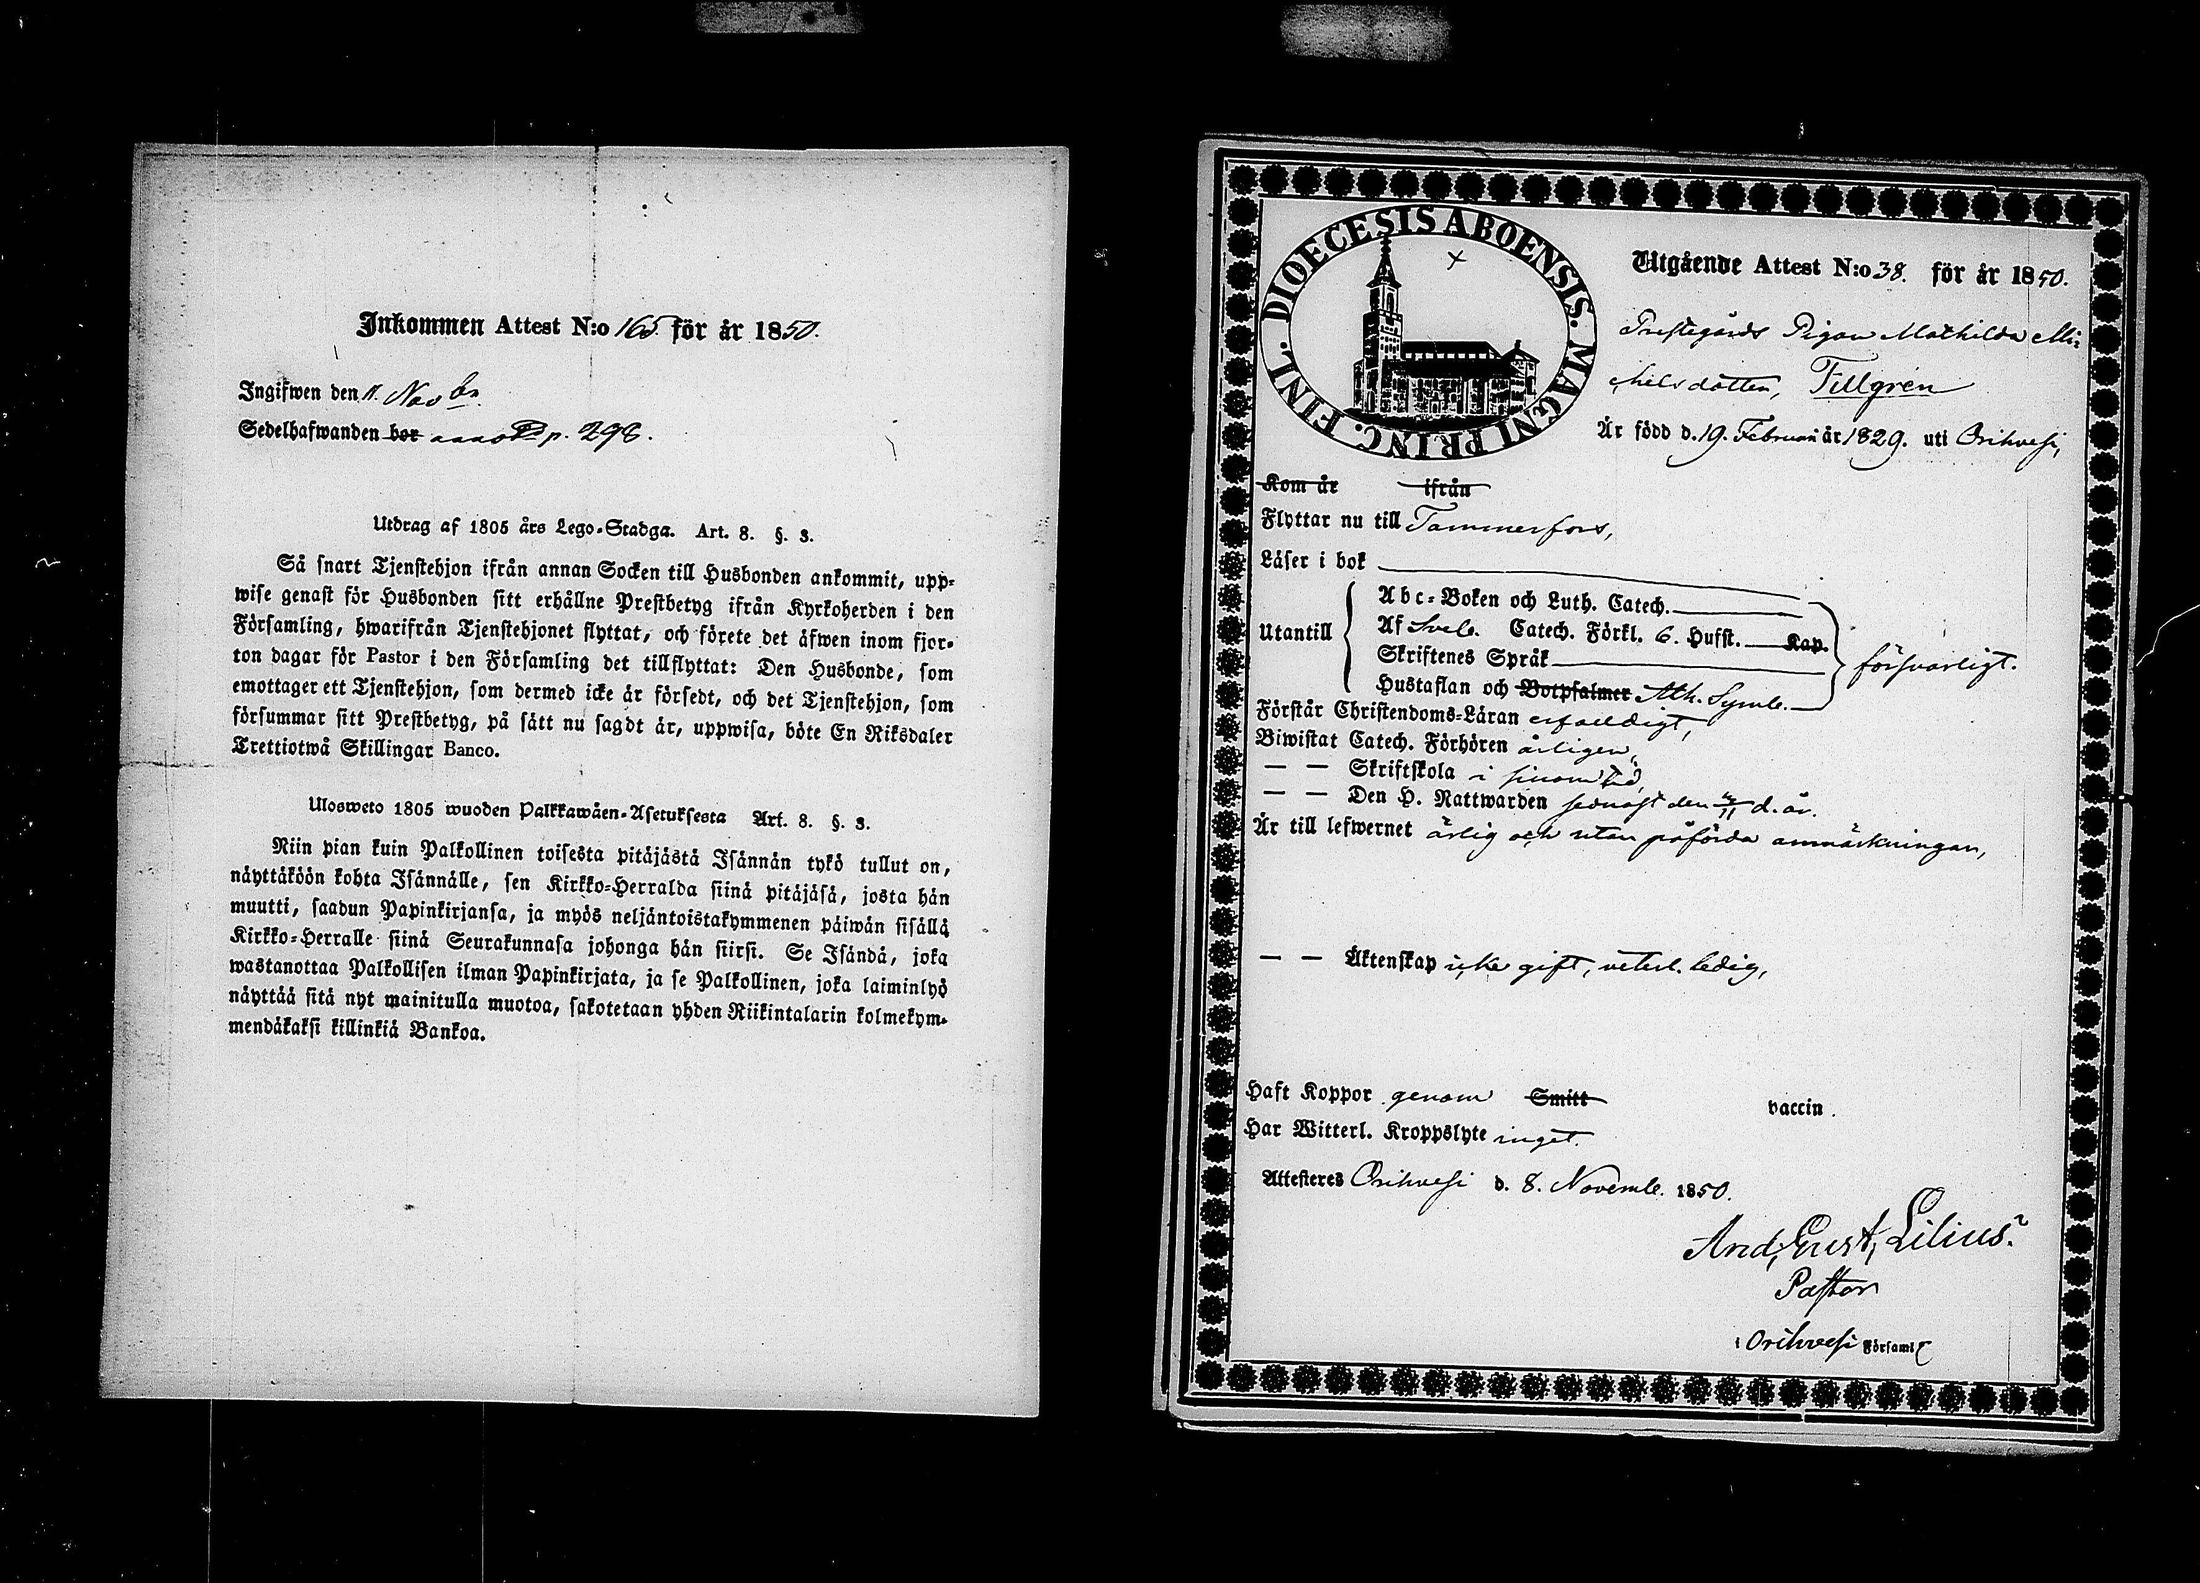 Inkommen Attest N:o 165 för år 1850.
Ingifwen den 11. Novbr.
Sedelhafwanden bor p. 298.
Utdrag af 1805 års Lego-Stadga. Art. 8. §. 3.
Så snart Tjenstehjon ifrån annan Socken till Husbonden ankommit, upp-
wise genast för Husbonden sitt erhållne Prestbetyg ifrån Kyrkoherden i den
Församling, hwarifrån Tjenstehjonet flyttat, och förete det äfwen inom fjor-
ton dagar för Pastor i den Församling det tillflyttat: Den Husbonde, som
emottager ett Tjenstehjon, som dermed icke är försedt, och det Tjenstehjon, som
försummar sitt Prestbetyg, på sätt nu sagdt är, uppwisa, böte En Riksdaler
Trettiotwå Skillingar Banco.
Ulosweto 1805 wuoden Palkkawäen-Asetuksesta Art. 8. §. 3.
Niin pian kuin Palkollinen toisesta pitäjästä Isännän tykö tullut on,
näyttäköön kohta Isännälle, sen Kirkko-Herralda siinä pitäjäsä, josta hän
muutti, saadun Papinkirjansa, ja myös neljäntoistakymmenen päiwän sisällä
Kirkko-Herralle siinä Seurakunnasa johonga hän siirsi. Se Isändä, joka
wastanottaa Palkollisen ilman Papinkirjata, ja se Palkollinen, joka laiminlyö
näyttää sitä nyt mainitulla muotoa, sakotetaan yhden Riikintalarin kolmekym-
mendäkaksi killinkiä Bankoa.
DIOECESIS ABOENSIS. MAGNI PRINC. FINL.
Utgående Attest N:o 38. för år 1850.
Prestegårds Pigan Mathilda Mi-
chelsdotter, Tillgrén
Är född d. 19. Februari år 1829. uti Orihvesi,
Kom år ifrån
Flyttar nu till Tammerfors,
Läser i bok
Utantill
Abc-Boken och Luth. Catech.
Af Sveb. Catech. Förkl. 6. Hufst. Kap.
Skriftenes Språk
Hustaflan och Botpsalmer Ath. Symb.
försvarligt.
Förstår Christendoms-Läran enfaldigt,
Biwistat Catech. Förhören årligen,
— — Skriftskola i sinom tid,
— — Den H. Nattwarden sednast den d. år.
Är till lefwernet ärlig och utan påförda anmärkningar,
— — Äktenskap icke gift, veterl. ledig,
Haft Koppor genom Smitt vaccin.
Har Witterl. Kroppslyte inget.
Attesteres Orihvesi d. 8. Novemb. 1850.
And. Gust. Lilius.
Pastor
i Orihvesi Församl